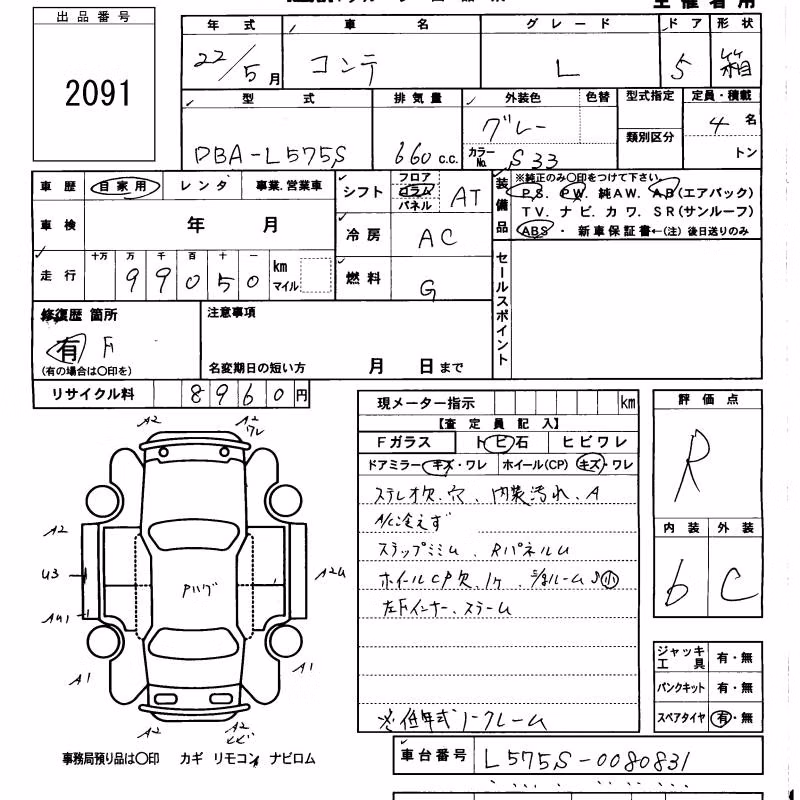 出品番号
2091
年式 車名 グレード ドア 形状
22/5月 コンテ L 5 箱
型式 排気量 外装色 色替 型式指定 定員・積載
DBA-L575S 660 c.c. グレー 4名
カラーNo. S33 類別区分 トン
車歴 自家用 レンタ 事業.営業車
車検 年 月
走行 十万 万 千 百 十 一
99050 km マイル
シフト フロア コラム パネル AT
冷房 AC
燃料 G
装備品 ※純正のみ〇印をつけて下さい。
P.S. P.W. 純AW. A.B(エアバック)
TV. ナビ. カワ. SR(サンルーフ)
ABS・新車保証書←(注)後日送りのみ
セールスポイント
修復歴 箇所
有 F
(有の場合は〇印を)
注意事項
名変期日の短い方 月 日まで
リサイクル料 8960円
現メーター指示 km
【査定員記入】
Fガラス トビ石 ヒビワレ
ドアミラー キズ・ワレ ホイール(CP) キズ・ワレ
ステレオ欠.穴、内装汚れ.A
A/C冷えず
ステップミミU RパネルU
ホイールCP欠.1ケ ルームS小
左Fインナー.
※低年式ノークレーム
評価点
R
内装 外装
6 C
ジャッキ工具 有・無
パンクキット 有・無
スペアタイヤ 有・無
A2
A2
ワレ
A2
U3
AU1
A2U
Pハゲ
A1
A1
A2
A2
ヒビ
事務局預り品は〇印 カギ リモコン ナビロム
車台番号 L575S-0080831